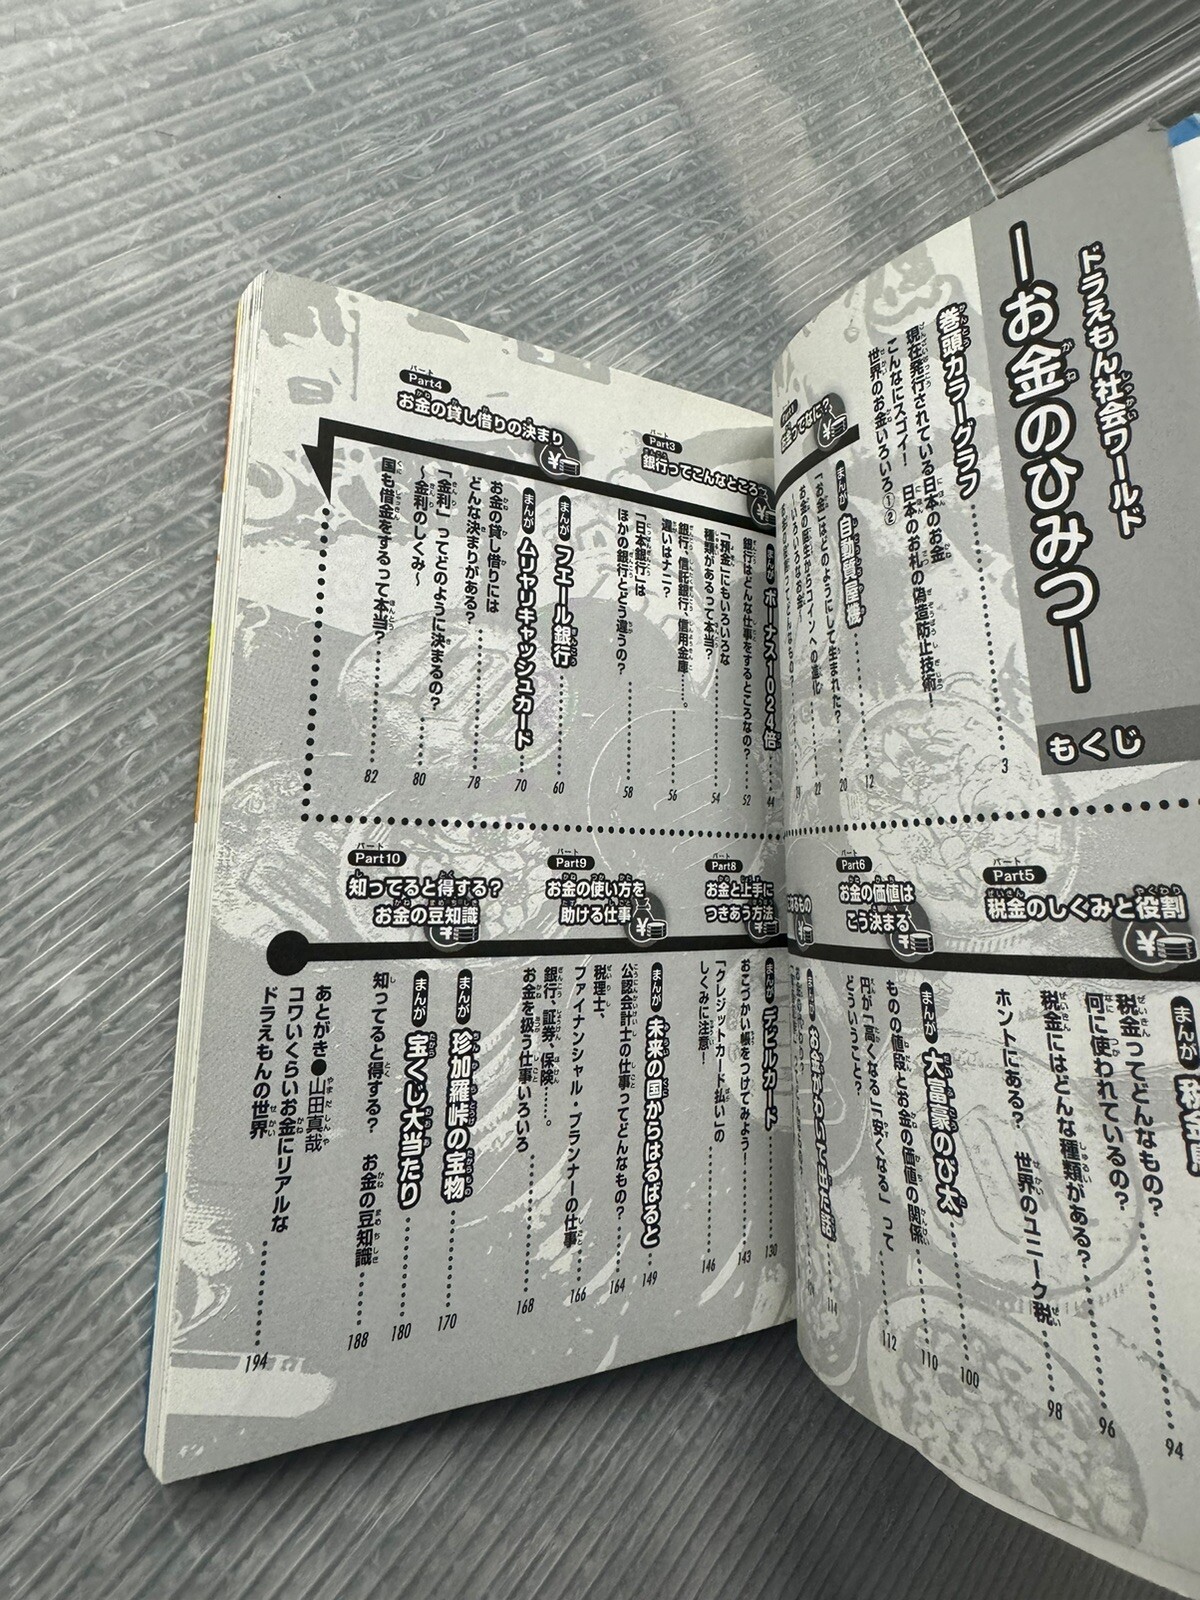 ドラえもん社会ワールド
―お金のひみつ―
もくじ
巻頭カラーグラフ
現在発行されている日本のお金
こんなにスゴイ! 日本のお札の偽造防止技術!
世界のお金いろいろ①②
3
まんが 自動質屋機 12
「お金」はどのようにして生まれた? 20
お金の誕生からコインへの進化 22
―いろいろなお金―
24
Part3
銀行ってこんなところ
まんが ボーナス1024倍 44
銀行はどんな仕事をするところなの? 52
「預金」にもいろいろな
種類があるって本当? 54
銀行、信託銀行、信用金庫……。
違いはナニ? 56
「日本銀行」は
ほかの銀行とどう違うの? 58
Part4
お金の貸し借りの決まり
まんが フエール銀行 60
まんが ムリヤリキャッシュカード 70
お金の貸し借りには
どんな決まりがある? 78
「金利」ってどのように決まるの?
～金利のしくみ～ 80
国も借金をするって本当? 82
Part5
税金のしくみと役割
まんが
税金ってどんなもの?
何に使われているの? 94
税金にはどんな種類がある? 96
ホントにある? 世界のユニーク税 98
Part6
お金の価値は
こう決まる
まんが 大富豪のび太 100
ものの値段とお金の価値の関係 110
円が「高くなる」「安くなる」って
どういうこと? 112
114
Part8
お金と上手に
つきあう方法
まんが デビルカード 130
おこづかい帳をつけてみよう! 143
「クレジットカード払い」の
しくみに注意! 146
Part9
お金の使い方を
助ける仕事
まんが 未来の国からはるばると 149
公認会計士の仕事ってどんなもの? 164
税理士、
ファイナンシャル・プランナーの仕事 166
銀行、証券、保険……。
お金を扱う仕事いろいろ 168
Part10
知ってると得する?
お金の豆知識
まんが 珍加羅峠の宝物 170
まんが 宝くじ大当たり 180
知ってると得する? お金の豆知識 188
あとがき●山田真哉
コワいくらいお金にリアルな
ドラえもんの世界 194